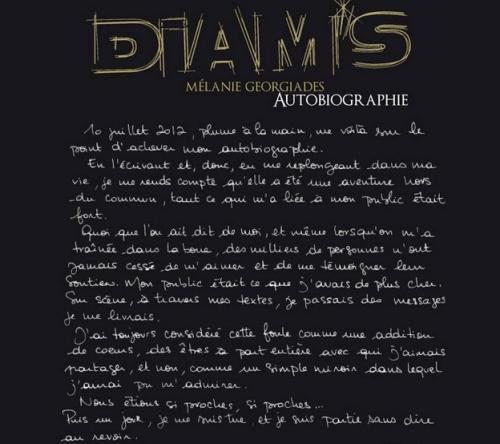 DIAM'S
MÉLANIE GEORGIADES
AUTOBIOGRAPHIE
10 juillet 2012, plume à la main, me voilà sur le
point d'achever mon autobiographie.
En l'écrivant et, donc, en me replongeant dans ma
vie, je me rends compte qu'elle a été une aventure hors
du commun, tant ce qui m'a liée à mon public était
fort.
Quoi que l'on ait dit de moi, et même lorsqu'on m'a
traînée dans la boue, des milliers de personnes n'ont
jamais cessé de m'aimer et de me témoigner leur
soutien. Mon public était ce que j'avais de plus cher.
Sur scène, à travers mes textes, je passais des messages
je me livrais.
J'ai toujours considéré cette foule comme une addition
de coeurs, des êtres à part entière avec qui j'aimais
partager, et non, comme un simple miroir dans lequel
j'aurai pu m'admirer.
Nous étions si proches, si proches...
Puis un jour, je me suis tue, et je suis partie sans dire
au revoir.